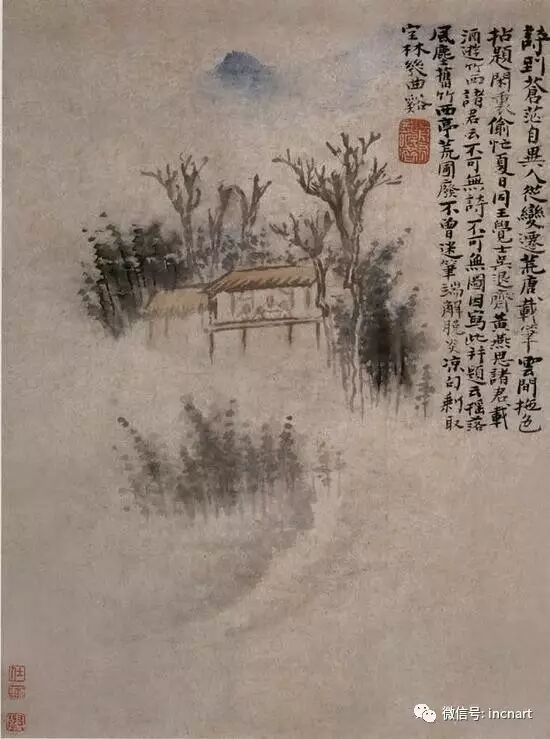 詩到蒼茫自異人從變遷荒唐載筆雲間色
拈題閑裏偷忙夏日同王覺士吳退齋黃燕思諸君載
酒遊竹西諸君云不可無詩不可無圖因寫此并題云搖落
風塵舊竹西亭荒圃廢不曾迷筆端解脫炎凉句剩取
空林幾曲谿
微信号: incnart